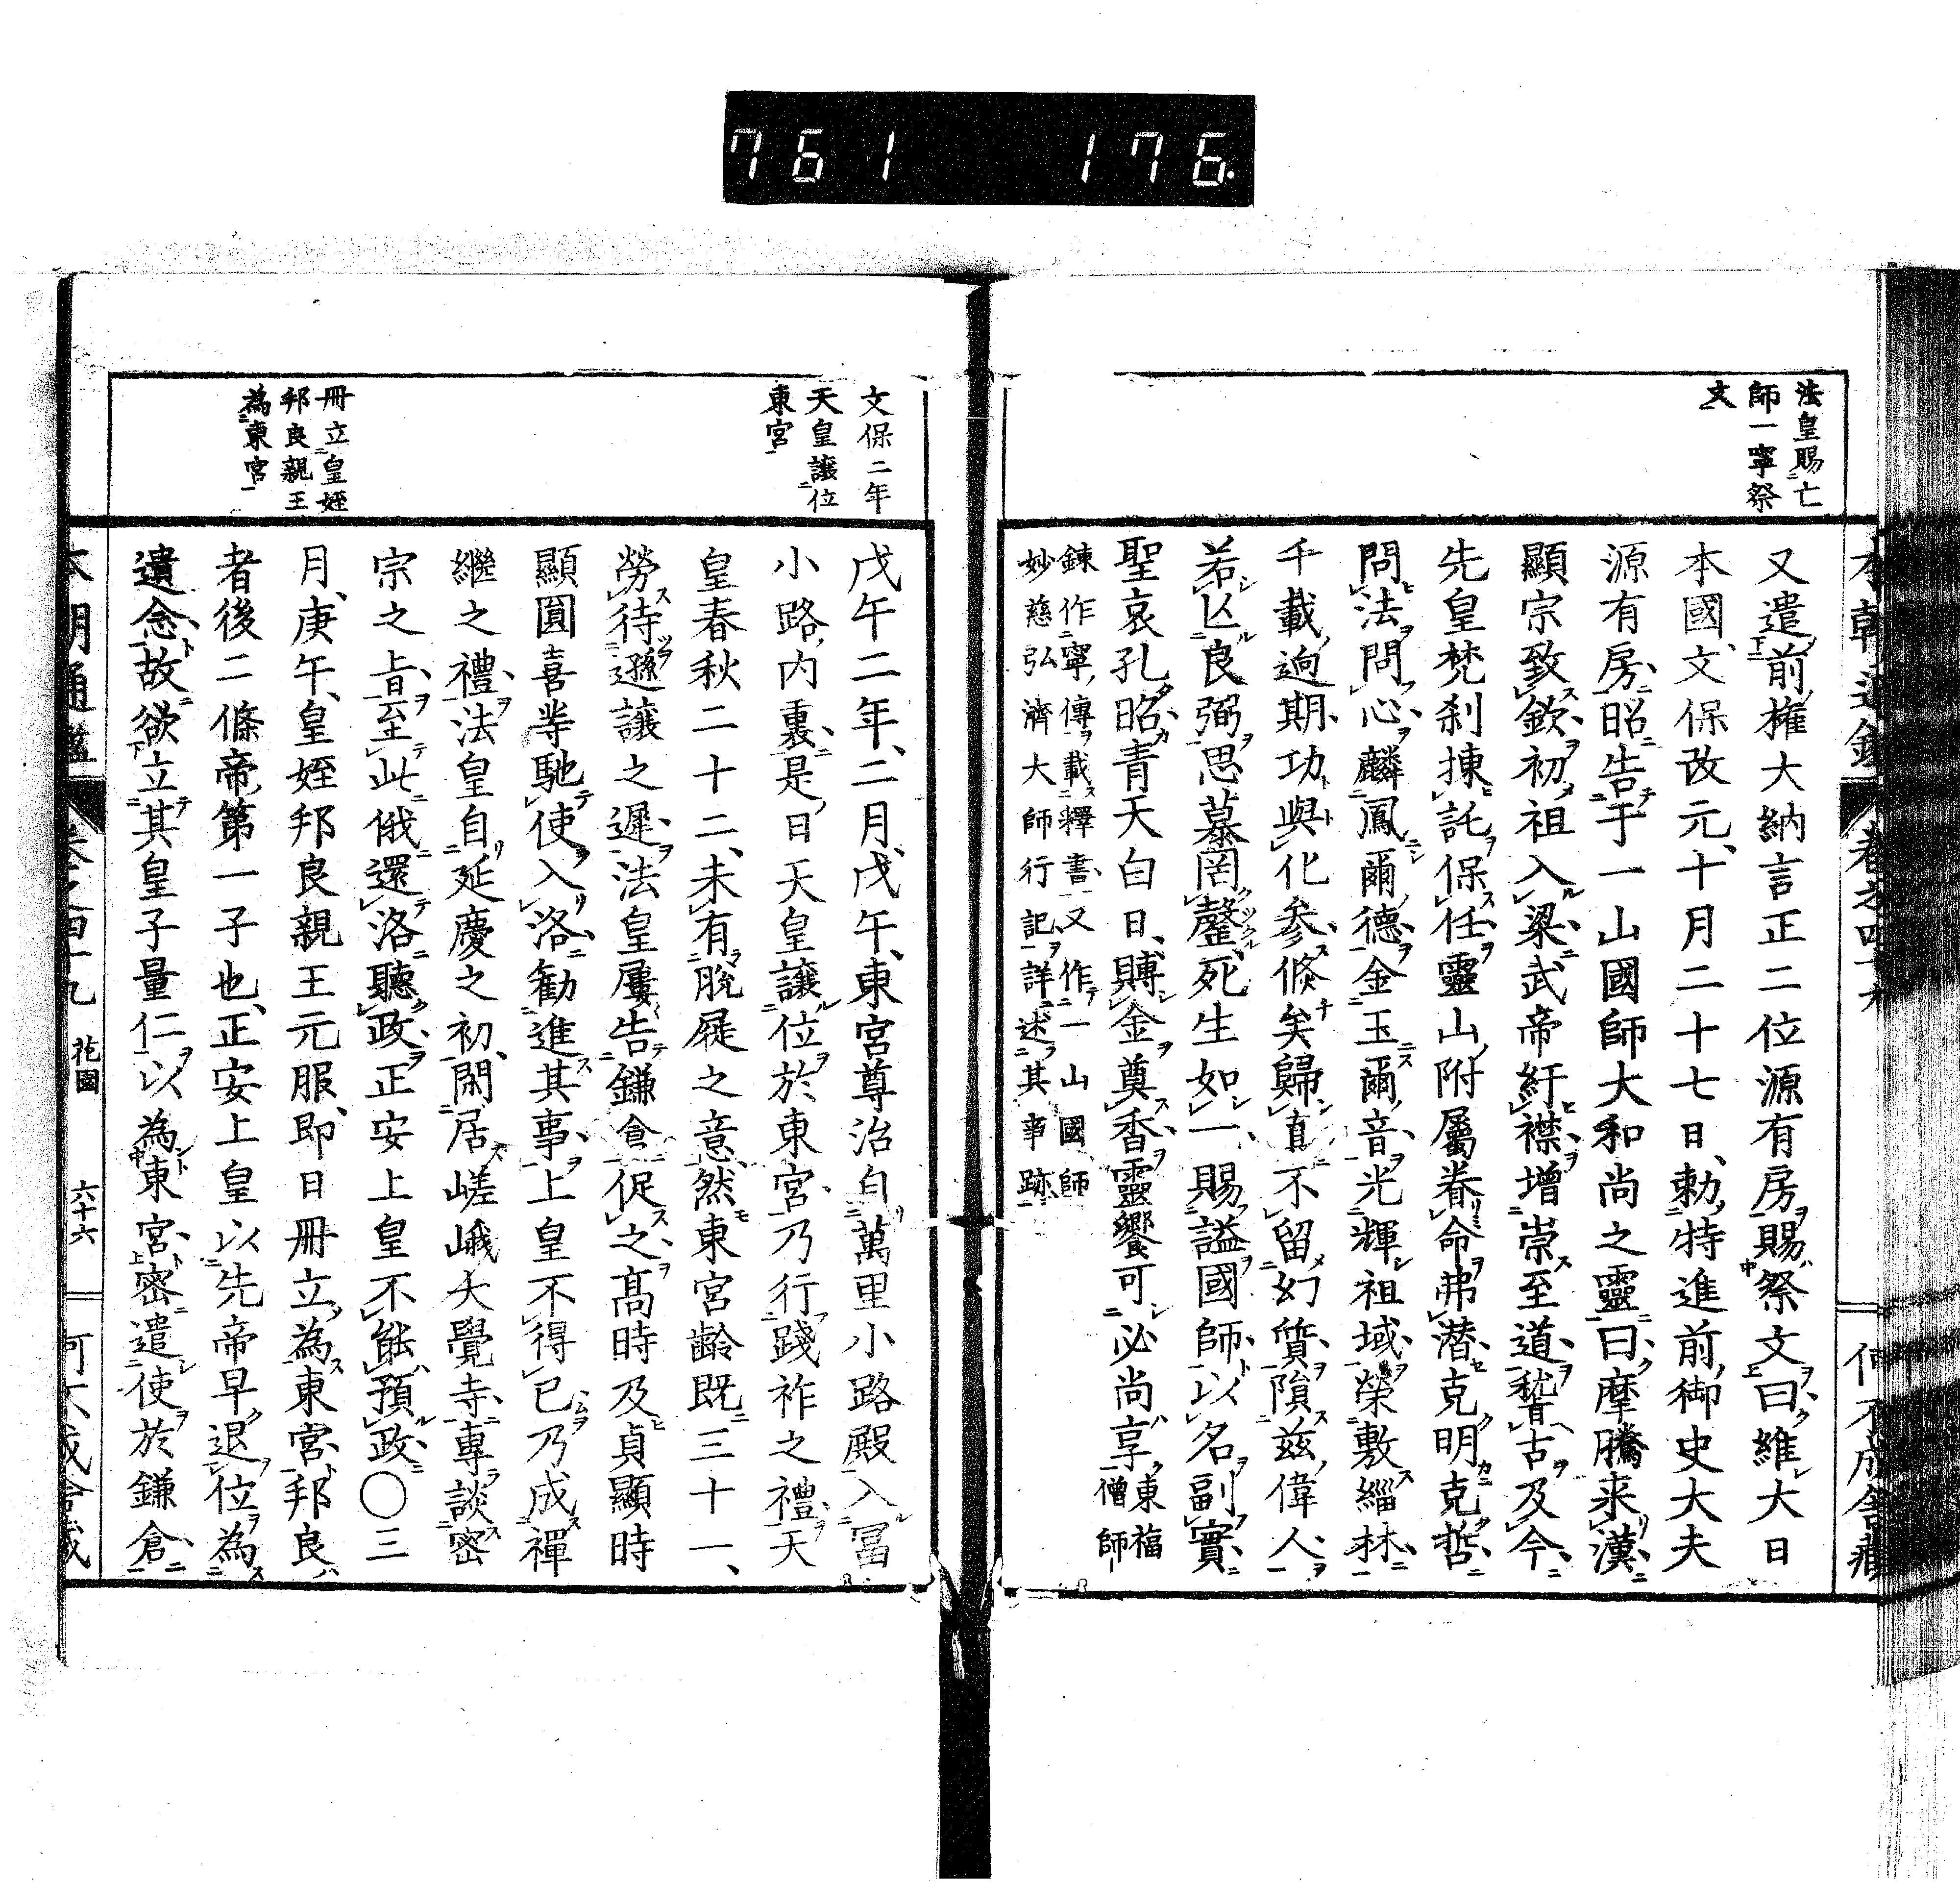 761 176.
本朝通鑑 卷之四十九 何不成舍藏
法皇賜亡
師一寧祭
文
又遣前權大納言正二位源有房賜祭文曰維大日
本國文保改元十月二十七日勅特進前御史大夫
源有房昭告于一山國師大和尚之靈曰摩騰来漢
顯宗致欽初祖入梁武帝紆襟增崇至道嵆古及今
先皇梵刹揀託保任靈山附屬眷命弗潜克明克哲
問法問心麟鳳爾德金玉爾音光輝祖域榮敷緇林
千載逈期功與化参倐矣歸真不留幻質隕茲偉人
若亾良弼思慕罔罄死生如一賜謚國師以名副實
聖哀孔昭青天白日賻金奠香靈饗可必尚享東福僧師
鍊作寧傳載釋書又作一山國師
妙慈弘濟大師行記詳述其事跡
文保二年
天皇讓位
東宮
冊立皇姪
邦良親王
為東宮
戊午二年二月戊午東宮尊治自萬里小路殿入冨
小路内裏是日天皇讓位於東宮乃行踐祚之禮天
皇春秋二十二未有脫屣之意然東宮齡既三十一
勞待遜讓之遲法皇屢告鎌倉促之髙時及貞顯時
顯圓喜等馳使入洛勸進其事上皇不得已乃成禪
繼之禮法皇自延慶之初閑居嵯峨大覺寺專談密
宗之旨至此俄還洛聽政正安上皇不能預政〇三
月庚午皇姪邦良親王元服即日冊立為東宮邦良
者後二條帝第一子也正安上皇以先帝早退位為
遺念故欲立其皇子量仁以為東宮密遣使於鎌倉
本朝通鑑 卷之四十九 花園 六十六 何不成舍藏